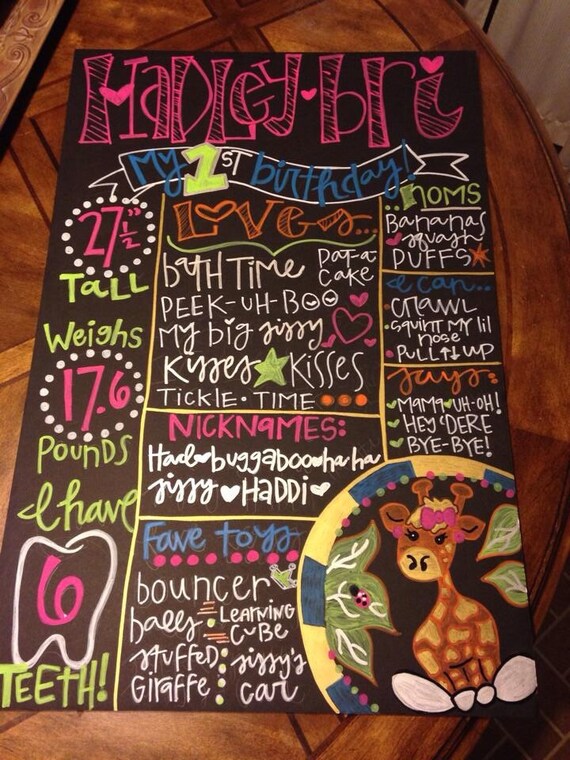 HADLEY·bri
My 1ST birthday!
27 1/2"
TALL
Weighs
17.6
POUNDS
I have
6
TEETH!
LOVES...
bathTime PaT-a CaKe
PEEK-UH-BOO
my big sissy
Kisses KISSES
TICKLE·TIME
NICKNAMES:
Had buggaboo ha ha
sissy HaDDi
Fave toys
bouncer
balls LEARNING CUBE
stuffed GIRAFFE
sissy's car
..NOMS
Bananas
squash
PUFFS
I can..
CRAWL
SQUINT MY lil nose
PULL UP
says:
MAMA UH-OH!
HEY 'DERE
BYE-BYE!